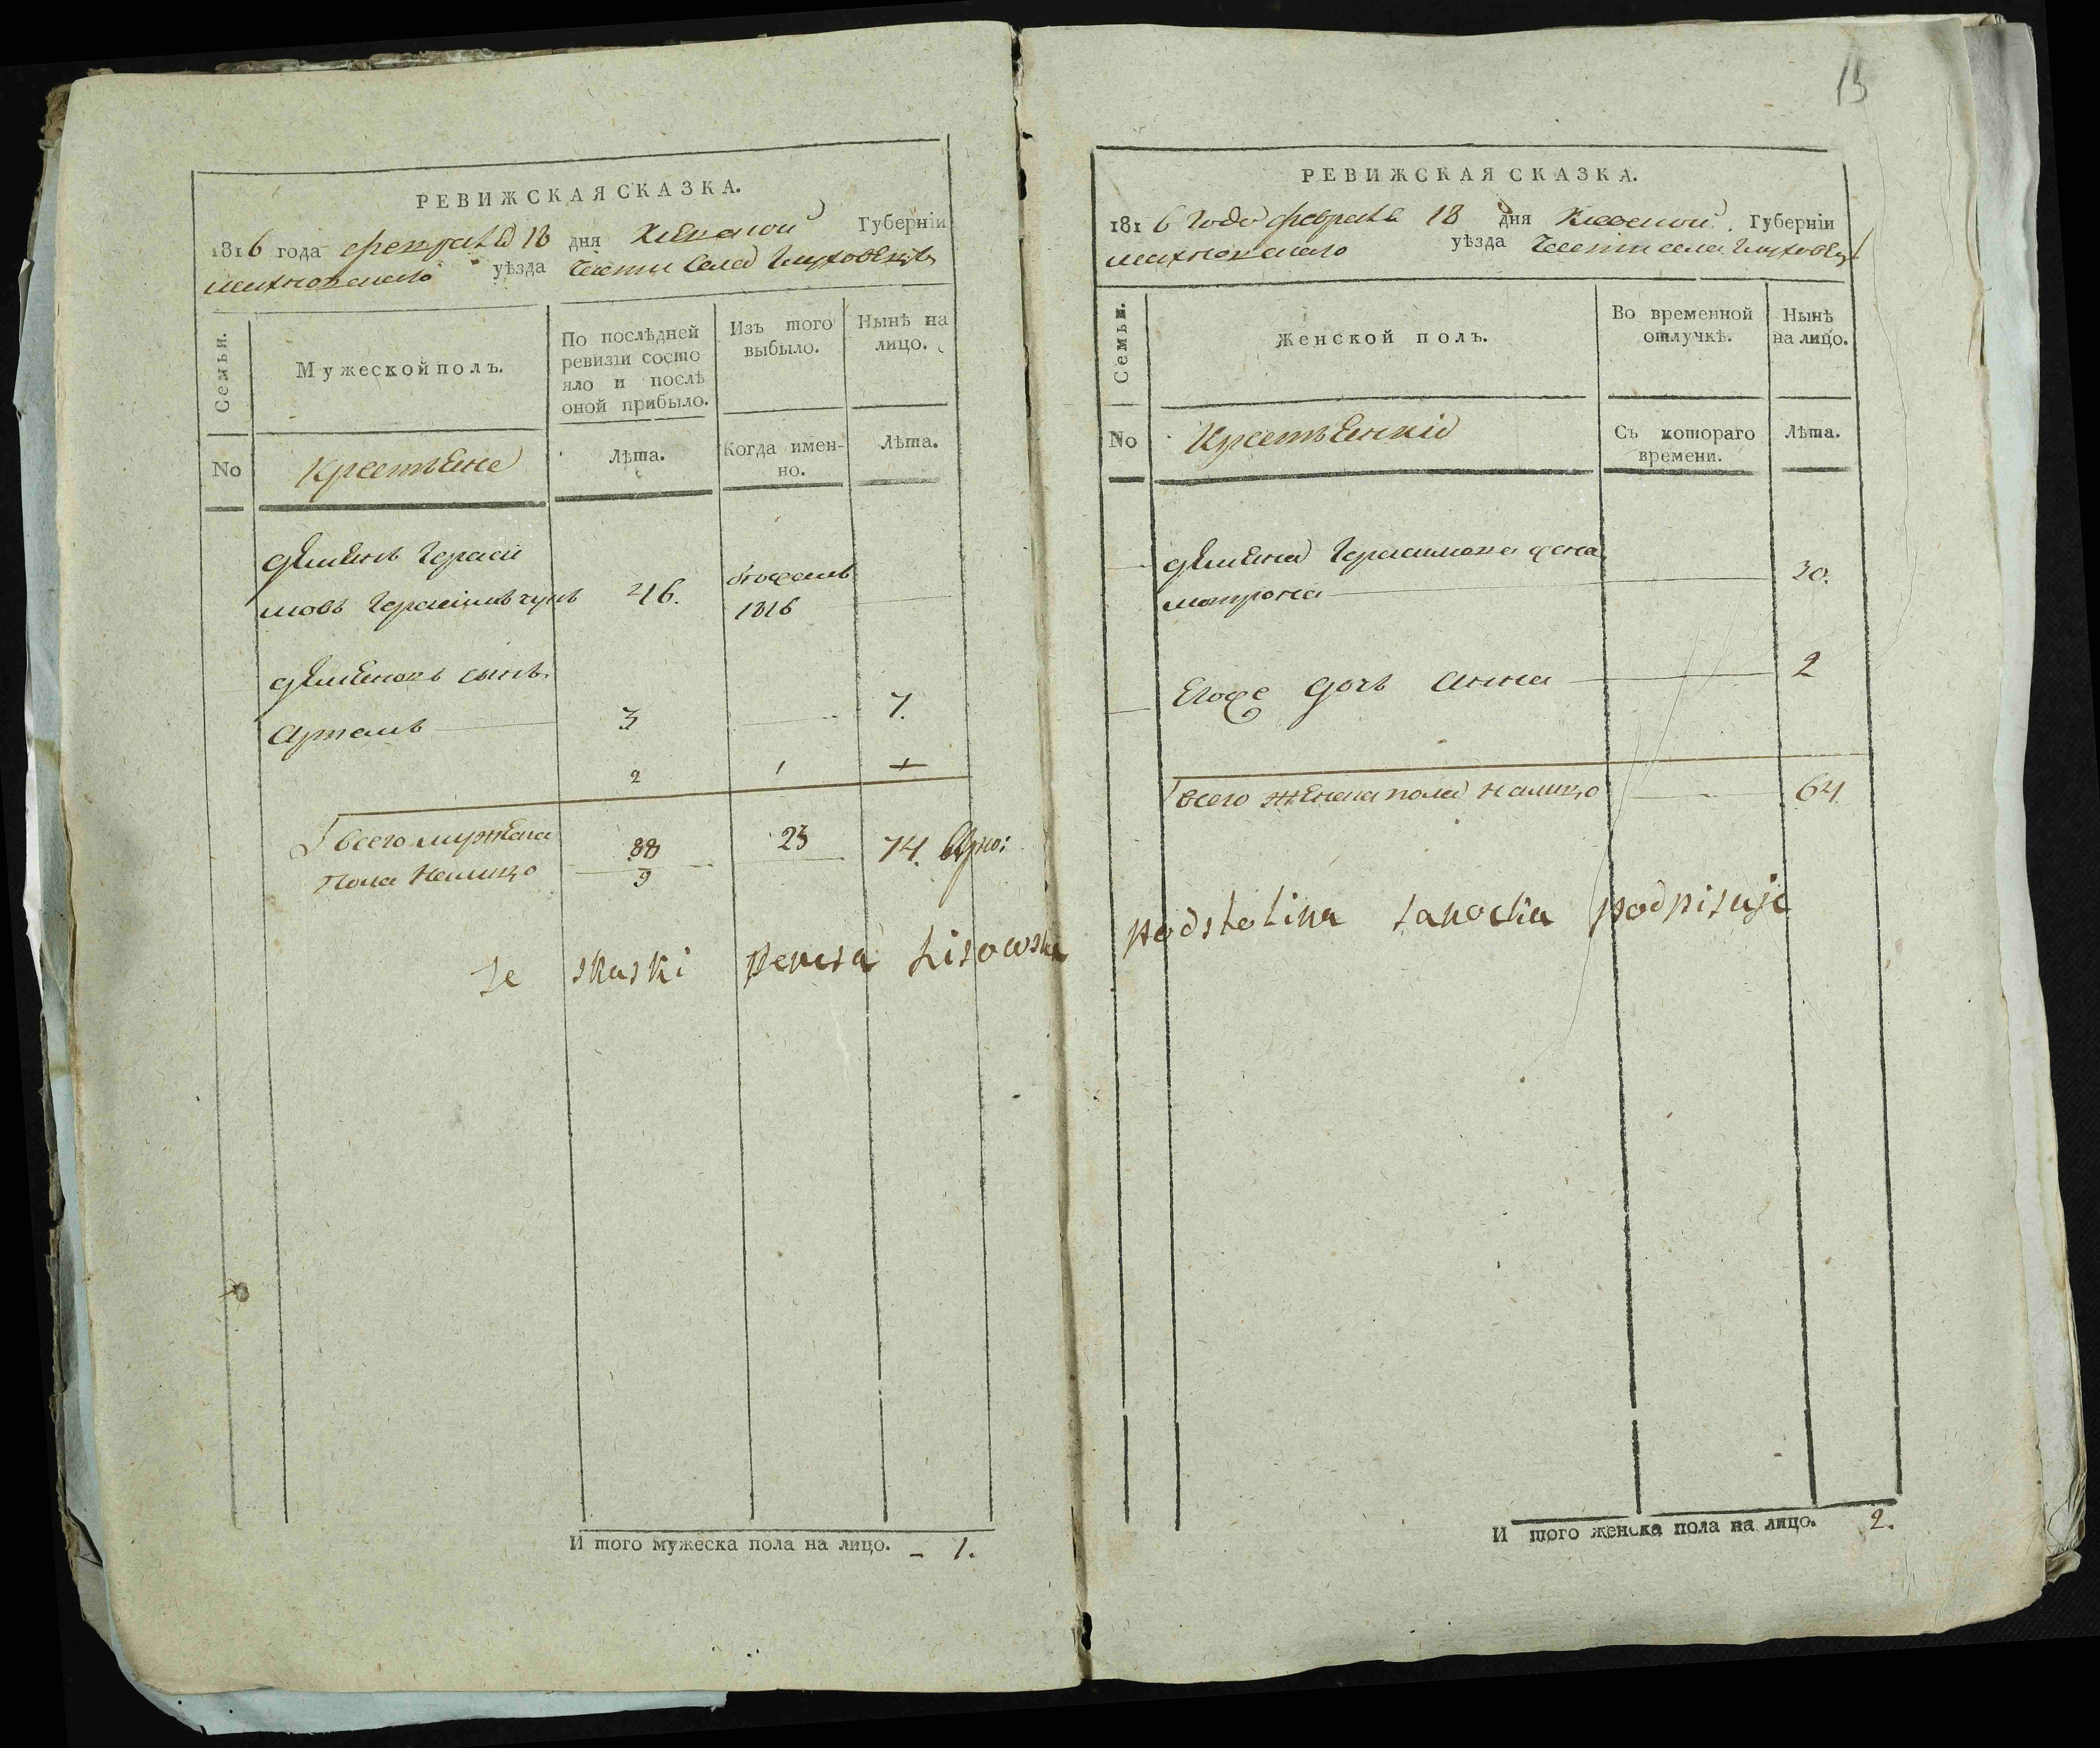 РЕВИЖСКАЯ СКАЗКА.
1816 года февраля 18 дня Киевской Губерніи
махновскаго уѣзда Части Села Глуховецъ
Семья.
Мужеской полъ.
По послѣдней
ревизіи состо
яло и послѣ
оной прибыло.
Изъ того
выбыло.
Нынѣ на
лицо.
No
Крестьяне
Лѣта.
Когда имен-
но.
Лѣта.
Гераси
мовъ 46. 1816
сынъ
Артемъ 3 7.
2 1 1
Всего мужеска 88 23 74.
пола налицо 9
Te skaski Lisowska podstolina podpisuje
И того мужеска пола на лицо. - 1.
13
РЕВИЖСКАЯ СКАЗКА.
1816 Года февраля 18 дня Киевской Губерніи
махновскаго уѣзда Части села
Семья.
Женской полъ.
Во временной
отлучкѣ.
Нынѣ
на лицо.
No
Съ котораго
времени.
Лѣта.
Герасимова жена
матрона 30.
Егоже дочь Анна 2
Всего женска пола налицо 64
И того женска пола на лицо. 2.